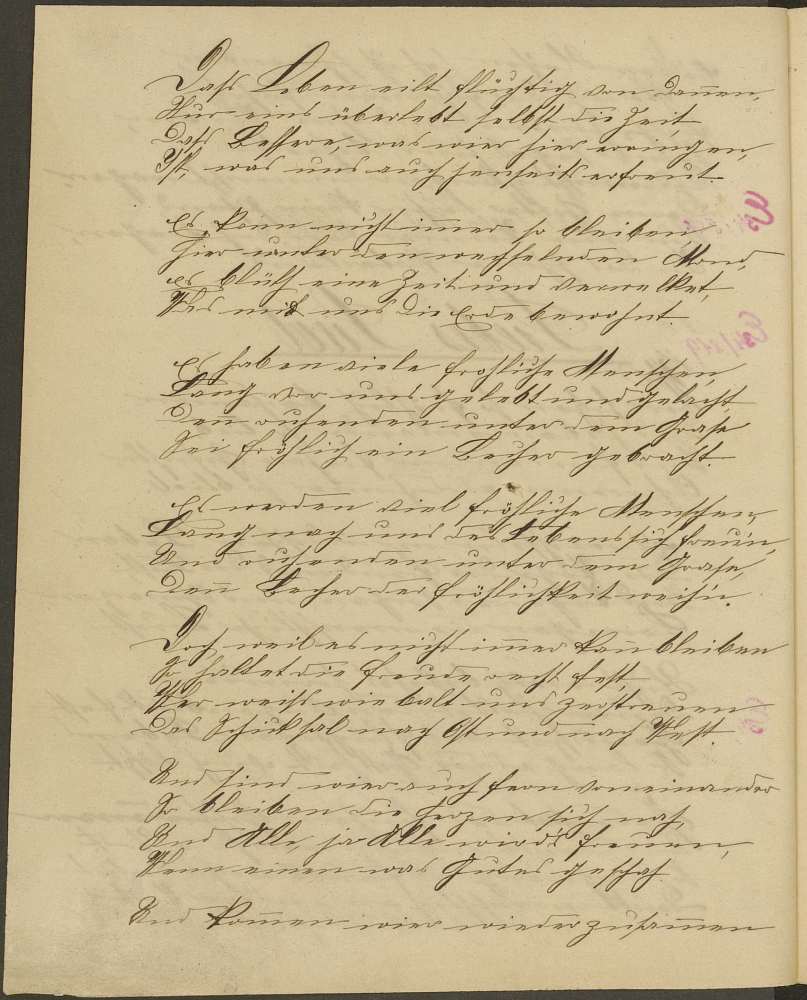 Dass Leben eilt flüchtig von dannen,
Nur eins überlebt selbst die Zeit
Dass Bessere, was wier hier erringen,
Ist was uns auch jenseits erfreut.
Es kann nicht immer so bleiben,
Hier unter den wechselnden Mond,
es blüth eine Zeit und verwelket,
Wes mit uns die Erde bewohnt.
Es haben viele frohliche Menschen,
Lang vor uns gelebt und gelacht,
Denn ruhenden unter dem Grase
Sei fröhlich ein Becher gebracht.
Es werden viel fröhliche Menschen,
Lang nach uns des Lebens sich freu'n,
Und ruhenden unter dem Grase,
Denn Becher der fröhlichkeit weih'n.
Doch weil es nicht immer kann bleiben
So haltet die Freude recht fest,
Wer weiss wie balt uns zerstreuen
Das Schuksal nach Ost und nach West.
Und sind wier auch fern von einander
So bleiben die Herzen sich nah,
Und Alle, ja Alle wird's freuen,
Wenn einen was Gutes geschah.
Und kommen wier wieder zusammen